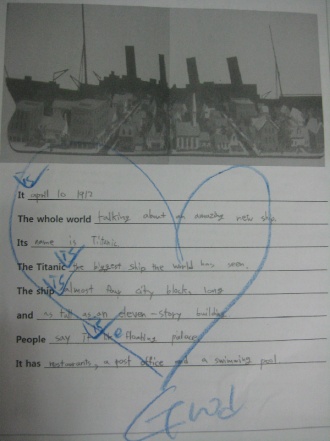 is
It april 10 1912
The whole world talking about an amazing new ship
Its name is Titanic
is
The Titanic the biggest ship the world has seen.
is
The ship almost four city blocks long
and as tall as an eleven-story building
is
People say it the floating palace
It has restaurants, a post office and a swimming pool
Good